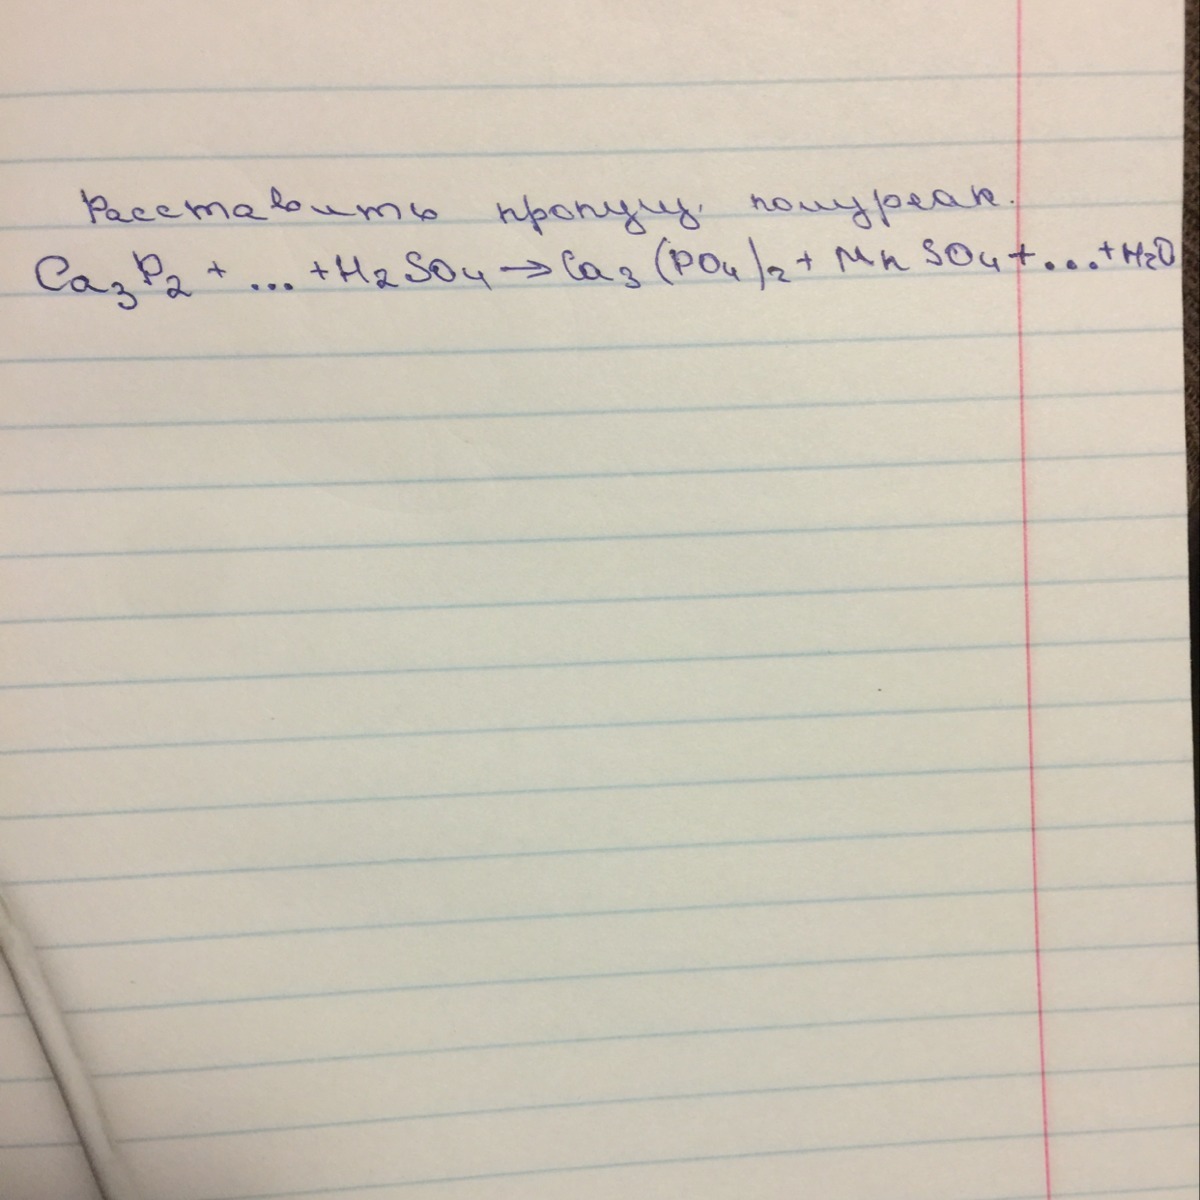 Расставить пропущ. полуреак.
Ca₃P₂ + ... + H₂SO₄ → Ca₃(PO₄)₂ + MnSO₄ + ... + H₂O